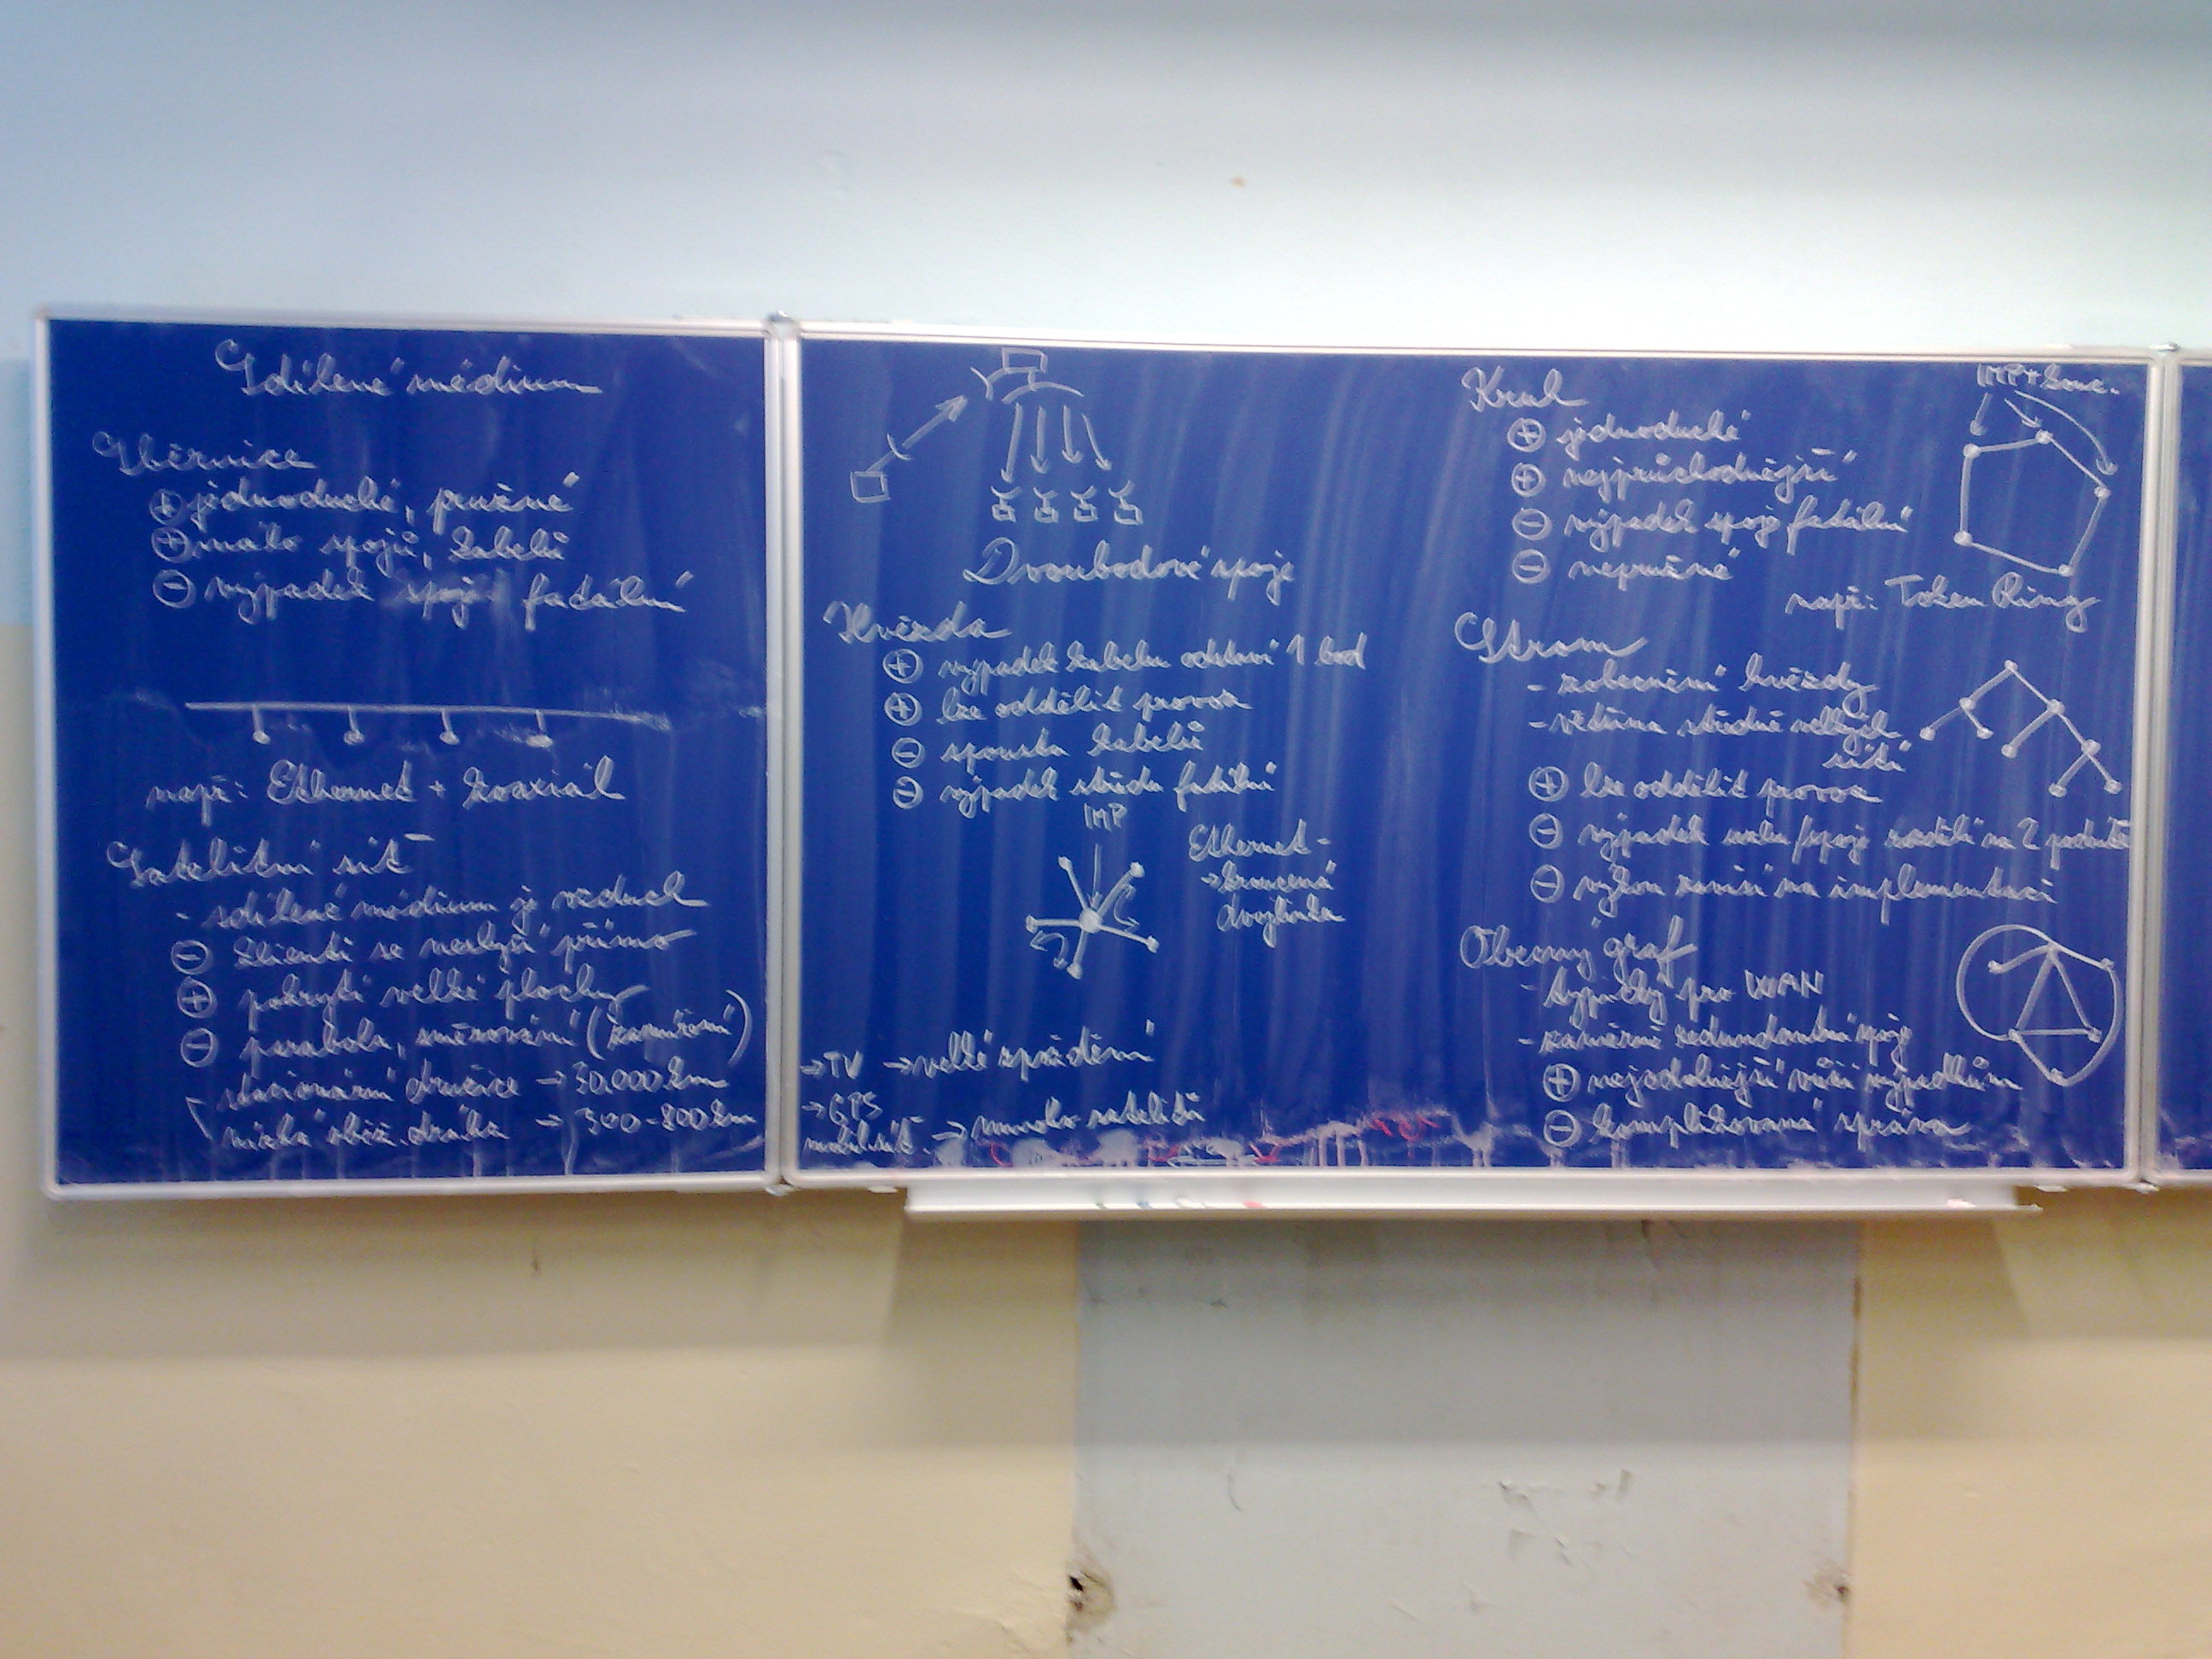 Sdílené médium
Sběrnice
⊕ jednoduché, pružné
⊕ málo spojů, kabelů
⊖ výpadek spoje fatální
např: Ethernet + koaxiál
Satelitní síť
- sdílené médium je vzduch
⊖ klienti se neslyší přímo
⊕ pokrytí velké plochy
⊖ parabola, směrování (zaměření)
stacionární družice → 30.000 km
nízká oběž. dráha → 300-800 km
→ TV → velké zpoždění
→ GPS
mobil. síť. → mnoho satelitů
Dvoubodové spoje
Hvězda
⊕ výpadek kabelu odstaví 1 bod
⊕ lze oddělit provoz
⊖ spousta kabelů
⊖ výpadek středu fatální
IMP
Ethernet -
→ kroucená
dvojlinka
Kruh
⊕ jednoduché
⊕ nejprůchodnější
⊖ výpadek spoje fatální
⊖ nepružné
IMP + konc.
např: Token Ring
Strom
- zobecnění hvězdy
- většina středně velkých
sítí
⊕ lze oddělit provoz
⊖ výpadek uzlu/spoje rozdělí na 2 podsítě
⊖ výkon závisí na implementaci
Obecný graf
- typicky pro WAN
- záměrně redundantní spoje
⊕ nejodolnější vůči výpadkům
⊖ komplikovaná správa